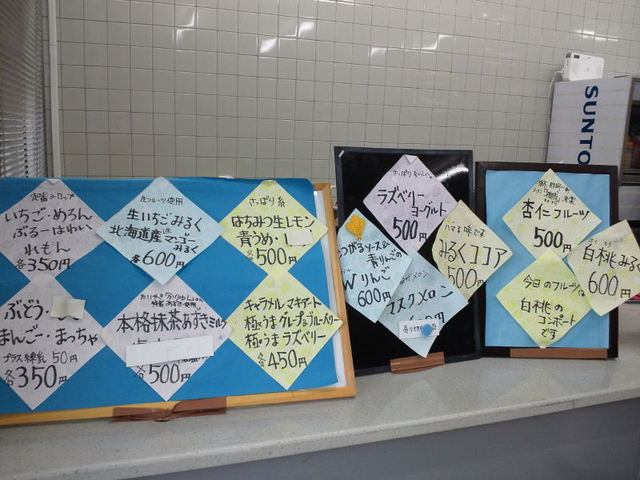 定番シロップ
いちご・めろん
ぶるーはわい
れもん
各350円
生フルーツ使用
生いちごみるく
北海道産マンゴー
みるく
各600円
さっぱり系
はちみつ生レモン
青うめ・
各500円
ぶどう・
まんご・まっちゃ
プラス練乳50円
各350円
本格抹茶あずきミルク
各500円
キャラメルマキアート
極うまグレープ&ブルーベリー
極うまラズベリー
各450円
さっぱりおいしい
ラズベリー
ヨーグルト
500円
つがるソース&
青りんごの
Wりんご
600円
みるくココア
500円
マスクメロン
杏仁フルーツ
500円
今日のフルーツは
白桃の
コンポート
です
白桃みるく
600円
SUNTO